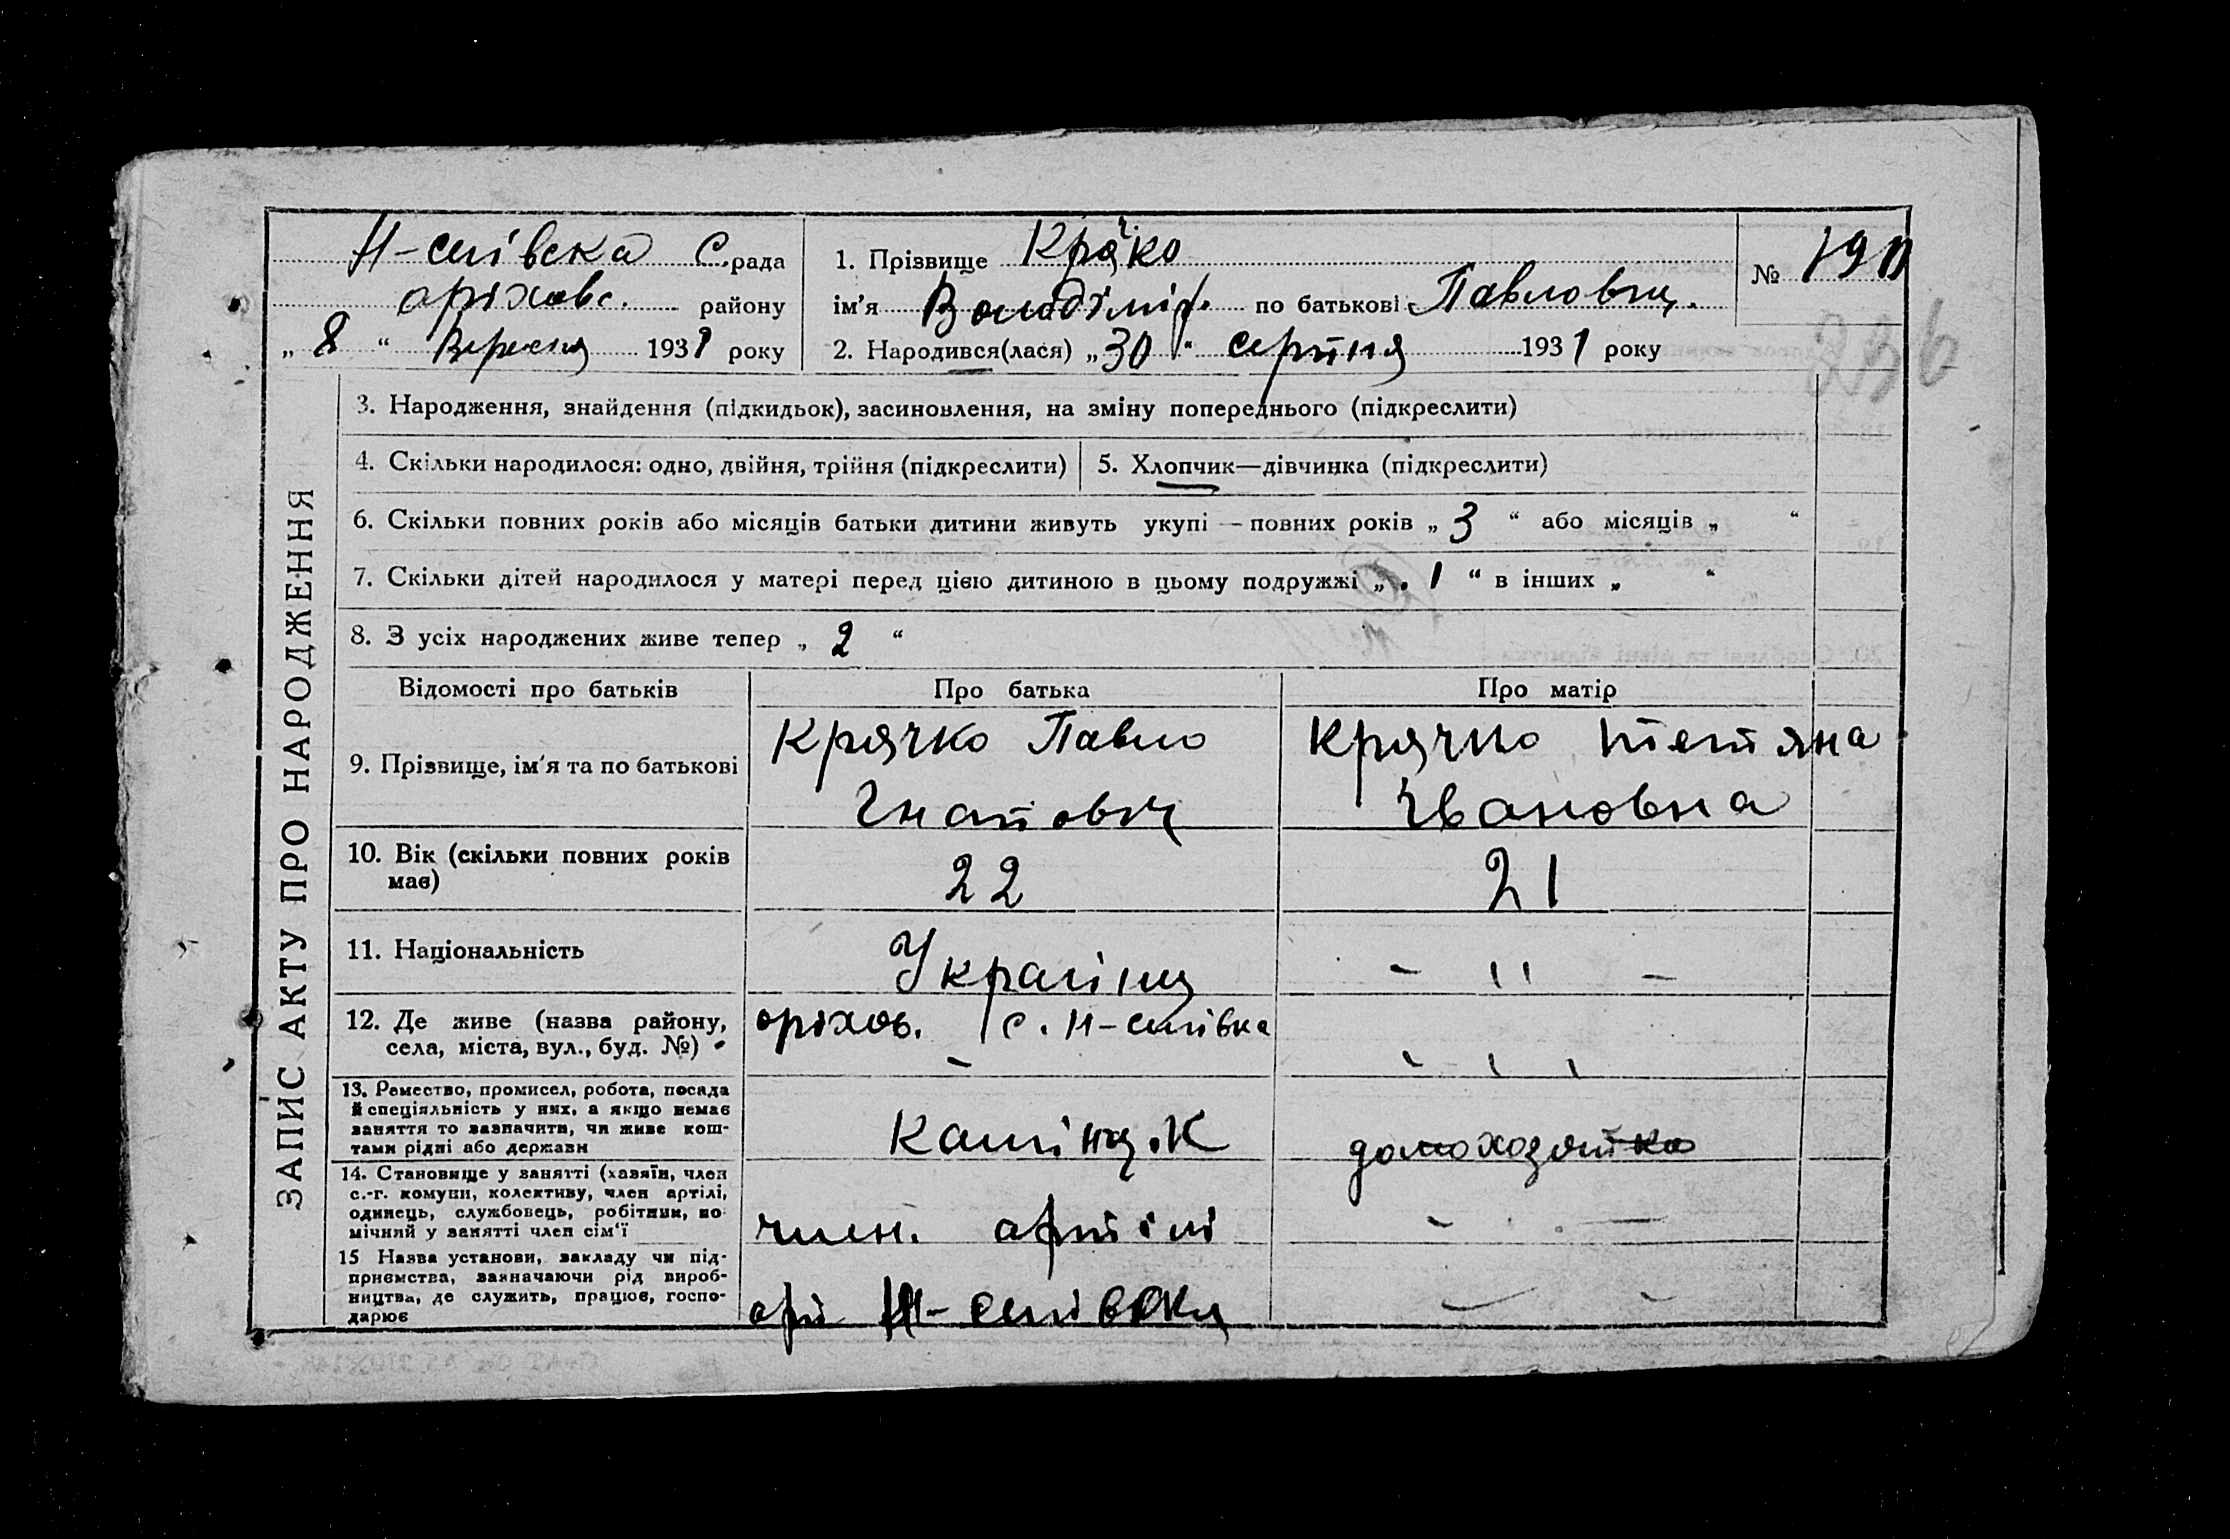 Н-слівська С.рада
оріхівс. району
„ 8 “ Вересня 1931 року
1. Прізвище Крячко
ім’я Володімір по батькові Павловіч.
2. Народився(лася) „ 30 “ серпня 1931 року
№ 190
236
ЗАПИС АКТУ ПРО НАРОДЖЕННЯ
3. Народження, знайдення (підкидьок), засиновлення, на зміну попереднього (підкреслити)
4. Скільки народилося: одно, двійня, трійня (підкреслити)
5. Хлопчик—дівчинка (підкреслити)
6. Скільки повних років або місяців батьки дитини живуть укупі — повних років „ 3 “ або місяців „ “
7. Скільки дітей народилося у матері перед цією дитиною в цьому подружжі „ 1 “ в інших „ “
8. З усіх народжених живе тепер „ 2 “
Відомості про батьків Про батька Про матір
9. Прізвище, ім’я та по батькові
Крячко Павло
Гнатовіч
Крячко Тетяна
Івановна
10. Вік (скільки повних років
має)
22
21
11. Національність
Українц
- ׀׀ -
12. Де живе (назва району,
села, міста, вул., буд. №)
оріхов. с. Н-слівка
13. Ремество, промисел, робота, посада
й спеціяльність у них, а якщо немає
заняття то зазначити, чи живе кош-
тами рідні або держави
домохозяйка
14. Становище у занятті (хазяїн, член
с.-г. комуни, колективу, член артілі,
одинець, службовець, робітник, по
мічний у занятті член сім’ї
член. артілі
15 Назва установи, закладу чи під-
приємства, зазначаючи рід вироб-
ництва, де служить, працює, госпо-
дарює
арт Н-слівска